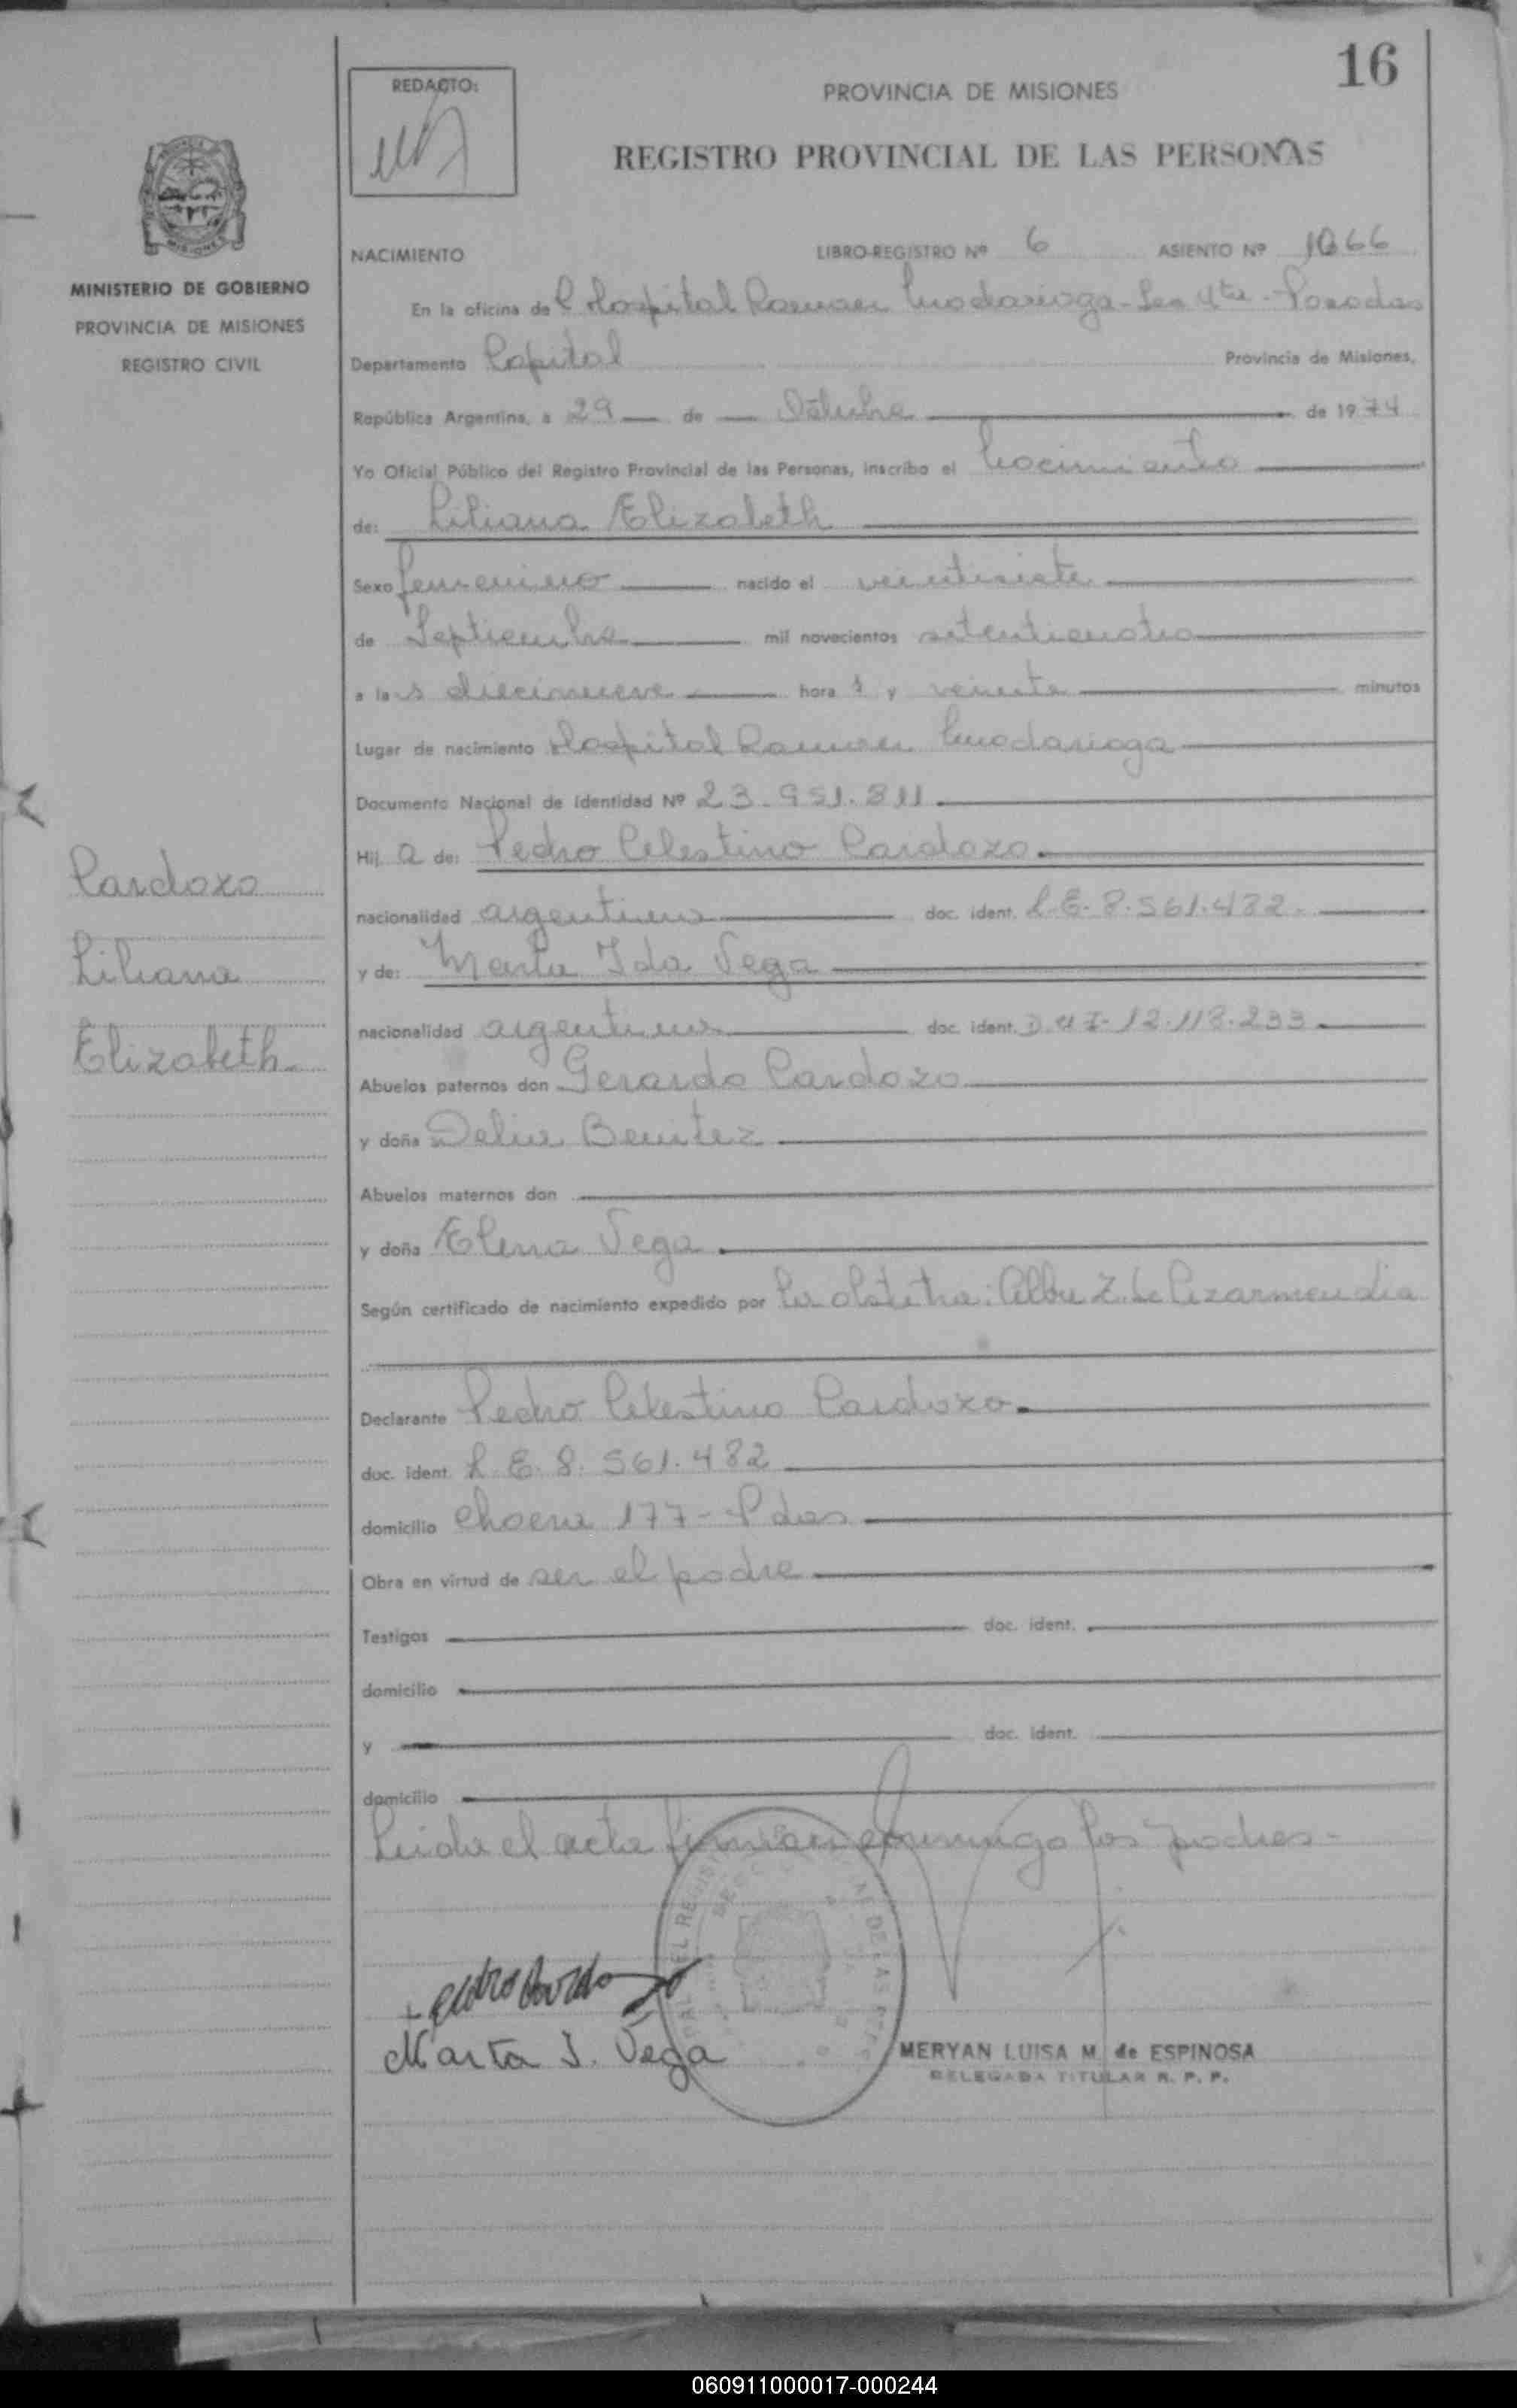 16
REDACTO:
PROVINCIA DE MISIONES
REGISTRO PROVINCIAL DE LAS PERSONAS
MISIONES
MINISTERIO DE GOBIERNO
PROVINCIA DE MISIONES
REGISTRO CIVIL
NACIMIENTO LIBRO-REGISTRO Nº 6 ASIENTO Nº 1066
En la oficina del Hospital Ramon Madariaga - Sec 4ta - Posadas
Departamento Capital Provincia de Misiones,
República Argentina, a 29 de Octubre de 1974
Yo Oficial Público del Registro Provincial de las Personas, inscribo el nacimiento
de: Liliana Elizabeth
Sexo femenino nacido el veintisiete
de Septiembre mil novecientos setenticuatro
a las diecinueve horas y veinte minutos
Lugar de nacimiento Hospital Ramon Madariaga
Documento Nacional de Identidad Nº 23.951.811
Hija de: Pedro Celestino Cardozo
nacionalidad argentino doc. ident. L.E. 8.561.482
y de: Marta Ida Vega
nacionalidad argentina doc. ident. D.N.I. 12.118.233
Abuelos paternos don Gerardo Cardozo
y doña Delia Benitez
Abuelos maternos don
y doña Elena Vega
Según certificado de nacimiento expedido por la obstetra: Alba Z. de
Declarante Pedro Celestino Cardozo
doc. ident. L.E. 8.561.482
domicilio 177 - Pdas
Obra en virtud de ser el padre
Testigos doc. ident.
domicilio
y doc. ident.
domicilio
Leida el acta firman conmigo los padres -
Cardozo
Liliana
Elizabeth
Pedro Cardozo
Marta I. Vega
MERYAN LUISA M. de ESPINOSA
DELEGADA TITULAR R. P. P.
060911000017-000244